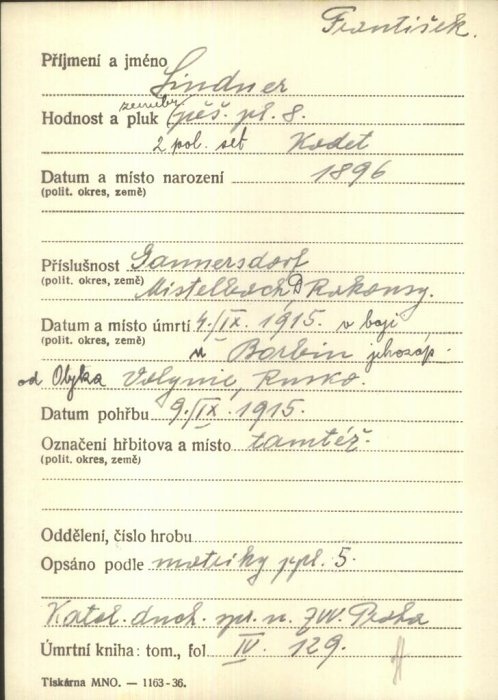 František.
Příjmení a jméno Lindner
Hodnost a pluk (pěš. pl. 8.
2 pol. set Kadet
Datum a místo narození 1896
(polit. okres, země)
Příslušnost Gannersdorf
(polit. okres, země) Mistelbach, D Rakousy.
Datum a místo úmrtí 4./IX. 1915. v boji
(polit. okres, země) u Borbin jihozáp.
od Olyka Volynie, Rusko.
Datum pohřbu 9./IX. 1915.
Označení hřbitova a místo tamtéž.
(polit. okres, země)
Oddělení, číslo hrobu
Opsáno podle matriky ppl. 5.
Katol. duch. spr. n. ZVV. Praha
Úmrtní kniha: tom., fol. IV. 129.
Tiskárna MNO. — 1163-36.